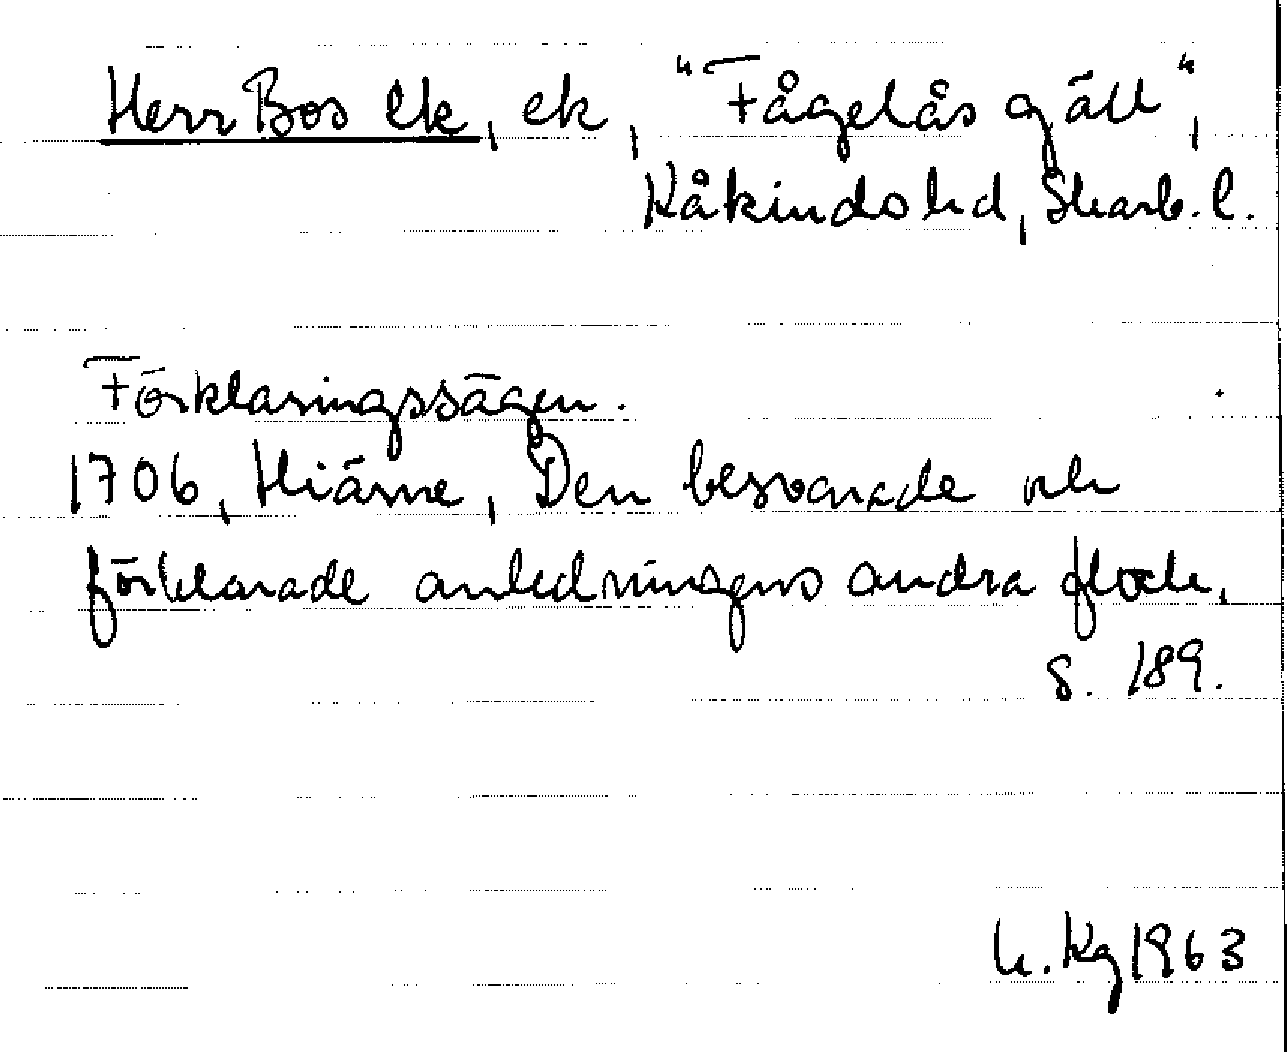 Herr Bos Ek, ek, "Fågelås gäll",
Kåkinds hd, Skarb. l.
Förklaringssägen.
1706, Hiärne, Den besvarade och
förklarade anledningens andra flock,
s. 189.
h. Kg 1963